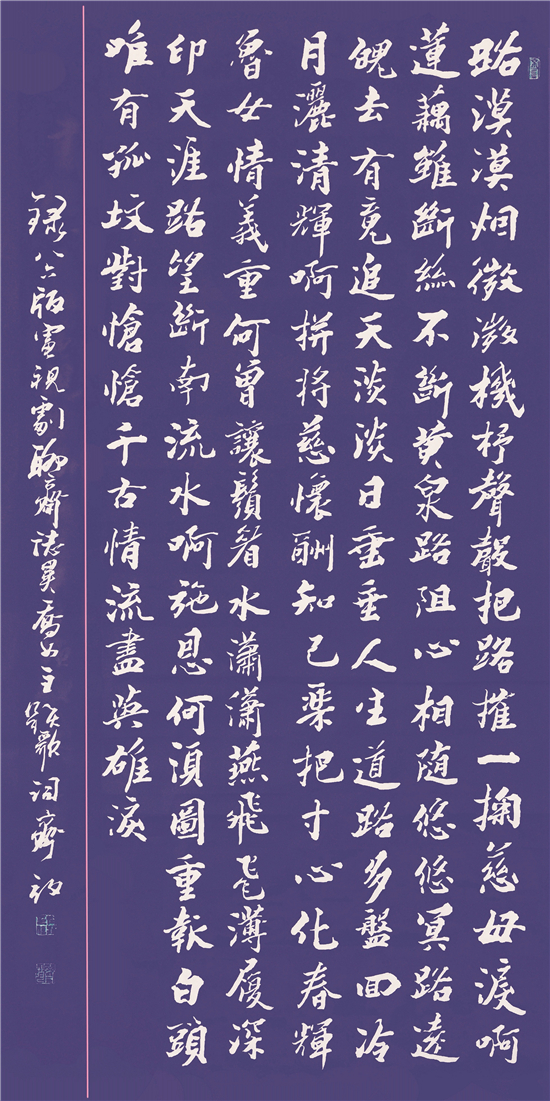 路漠漠烟微微機杼聲聲把路摧一掬慈母淚啊
蓮藕雖斷絲不斷黄泉路阻心相随悠悠冥路遠
魄去有竟追天淡淡日垂垂人生道路多盤回冷
月灑清輝啊拼将慈懷酬知己把寸心化春輝
魯女情義重何曾讓鬚眉水瀟瀟燕飛飛薄履深
印天涯路望斷南流水啊施恩何須圖重報白頭
唯有孤墳對愴愴千古情流盡英雄淚
録八六版電視劇聊齋誌異喬女主題歌詞齊